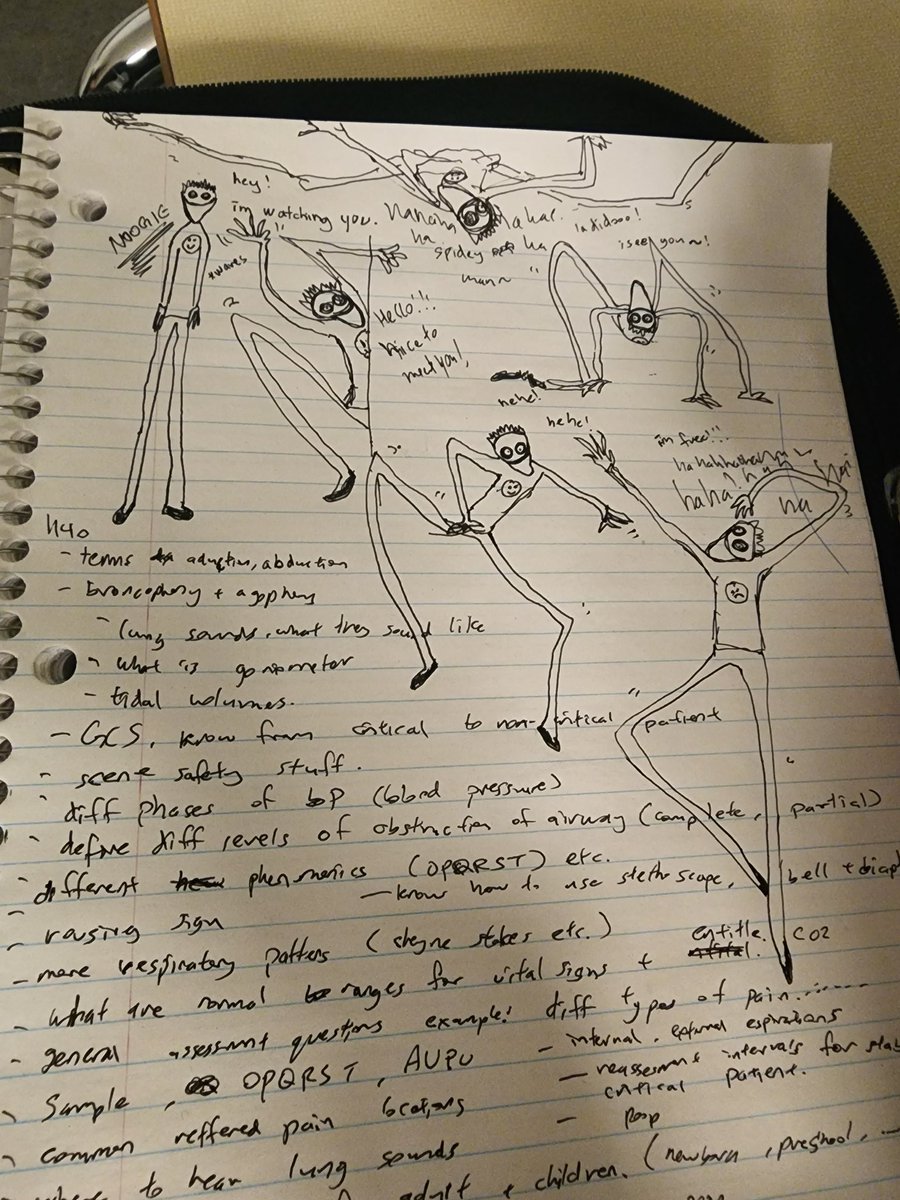 hey!
NOODLE
im watching you.
*waves
Hello!!!
Nice to
meet you!
Hahaha
ha
spidey
ha
man~
ladidooo!
i see you~!
hehe!
hehe!
im free!!!
haha!
ha
H40
- terms aduction, abduction
- Broncophony + agophony
- lung sounds, what they sound like
- what is goniometer
- tidal volumes.
- GCS, know from critical to non-critical patient
- scene safety stuff.
- diff phases of bp (blood pressure)
- define diff levels of obstruction of airway (complete, partial)
- different phenmonics (OPQRST) etc.
- know how to use stethoscope, (bell + diap
- rovsing sign
- more respiratory patters (cheyne stokes etc.)
- what are normal ranges for vital signs + entitle. CO2
- general assessment questions example! diff types of pain......
- Sample, OPQRST, AVPU
- internal, external espirations
- reassessment intervals for stab
critical patient.
- common reffered pain locations
- poop
where to hear lung sounds
adult + children. (newborn, preshool, ...